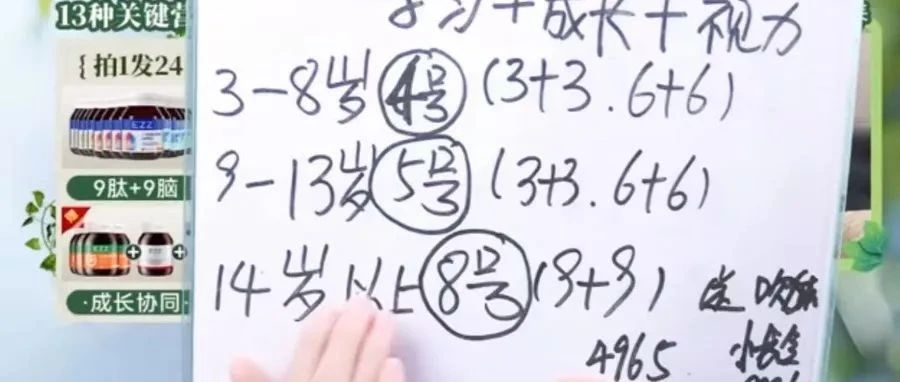 13种关键营
{拍1发24
EZZ
9肽+9脑
EZZ
·成长协同·
学习+成长+视力
3-8岁 4号 (3+3.6+6)
9-13岁 5号 (3+3.6+6)
14岁以上 8号 (9+9)
4965